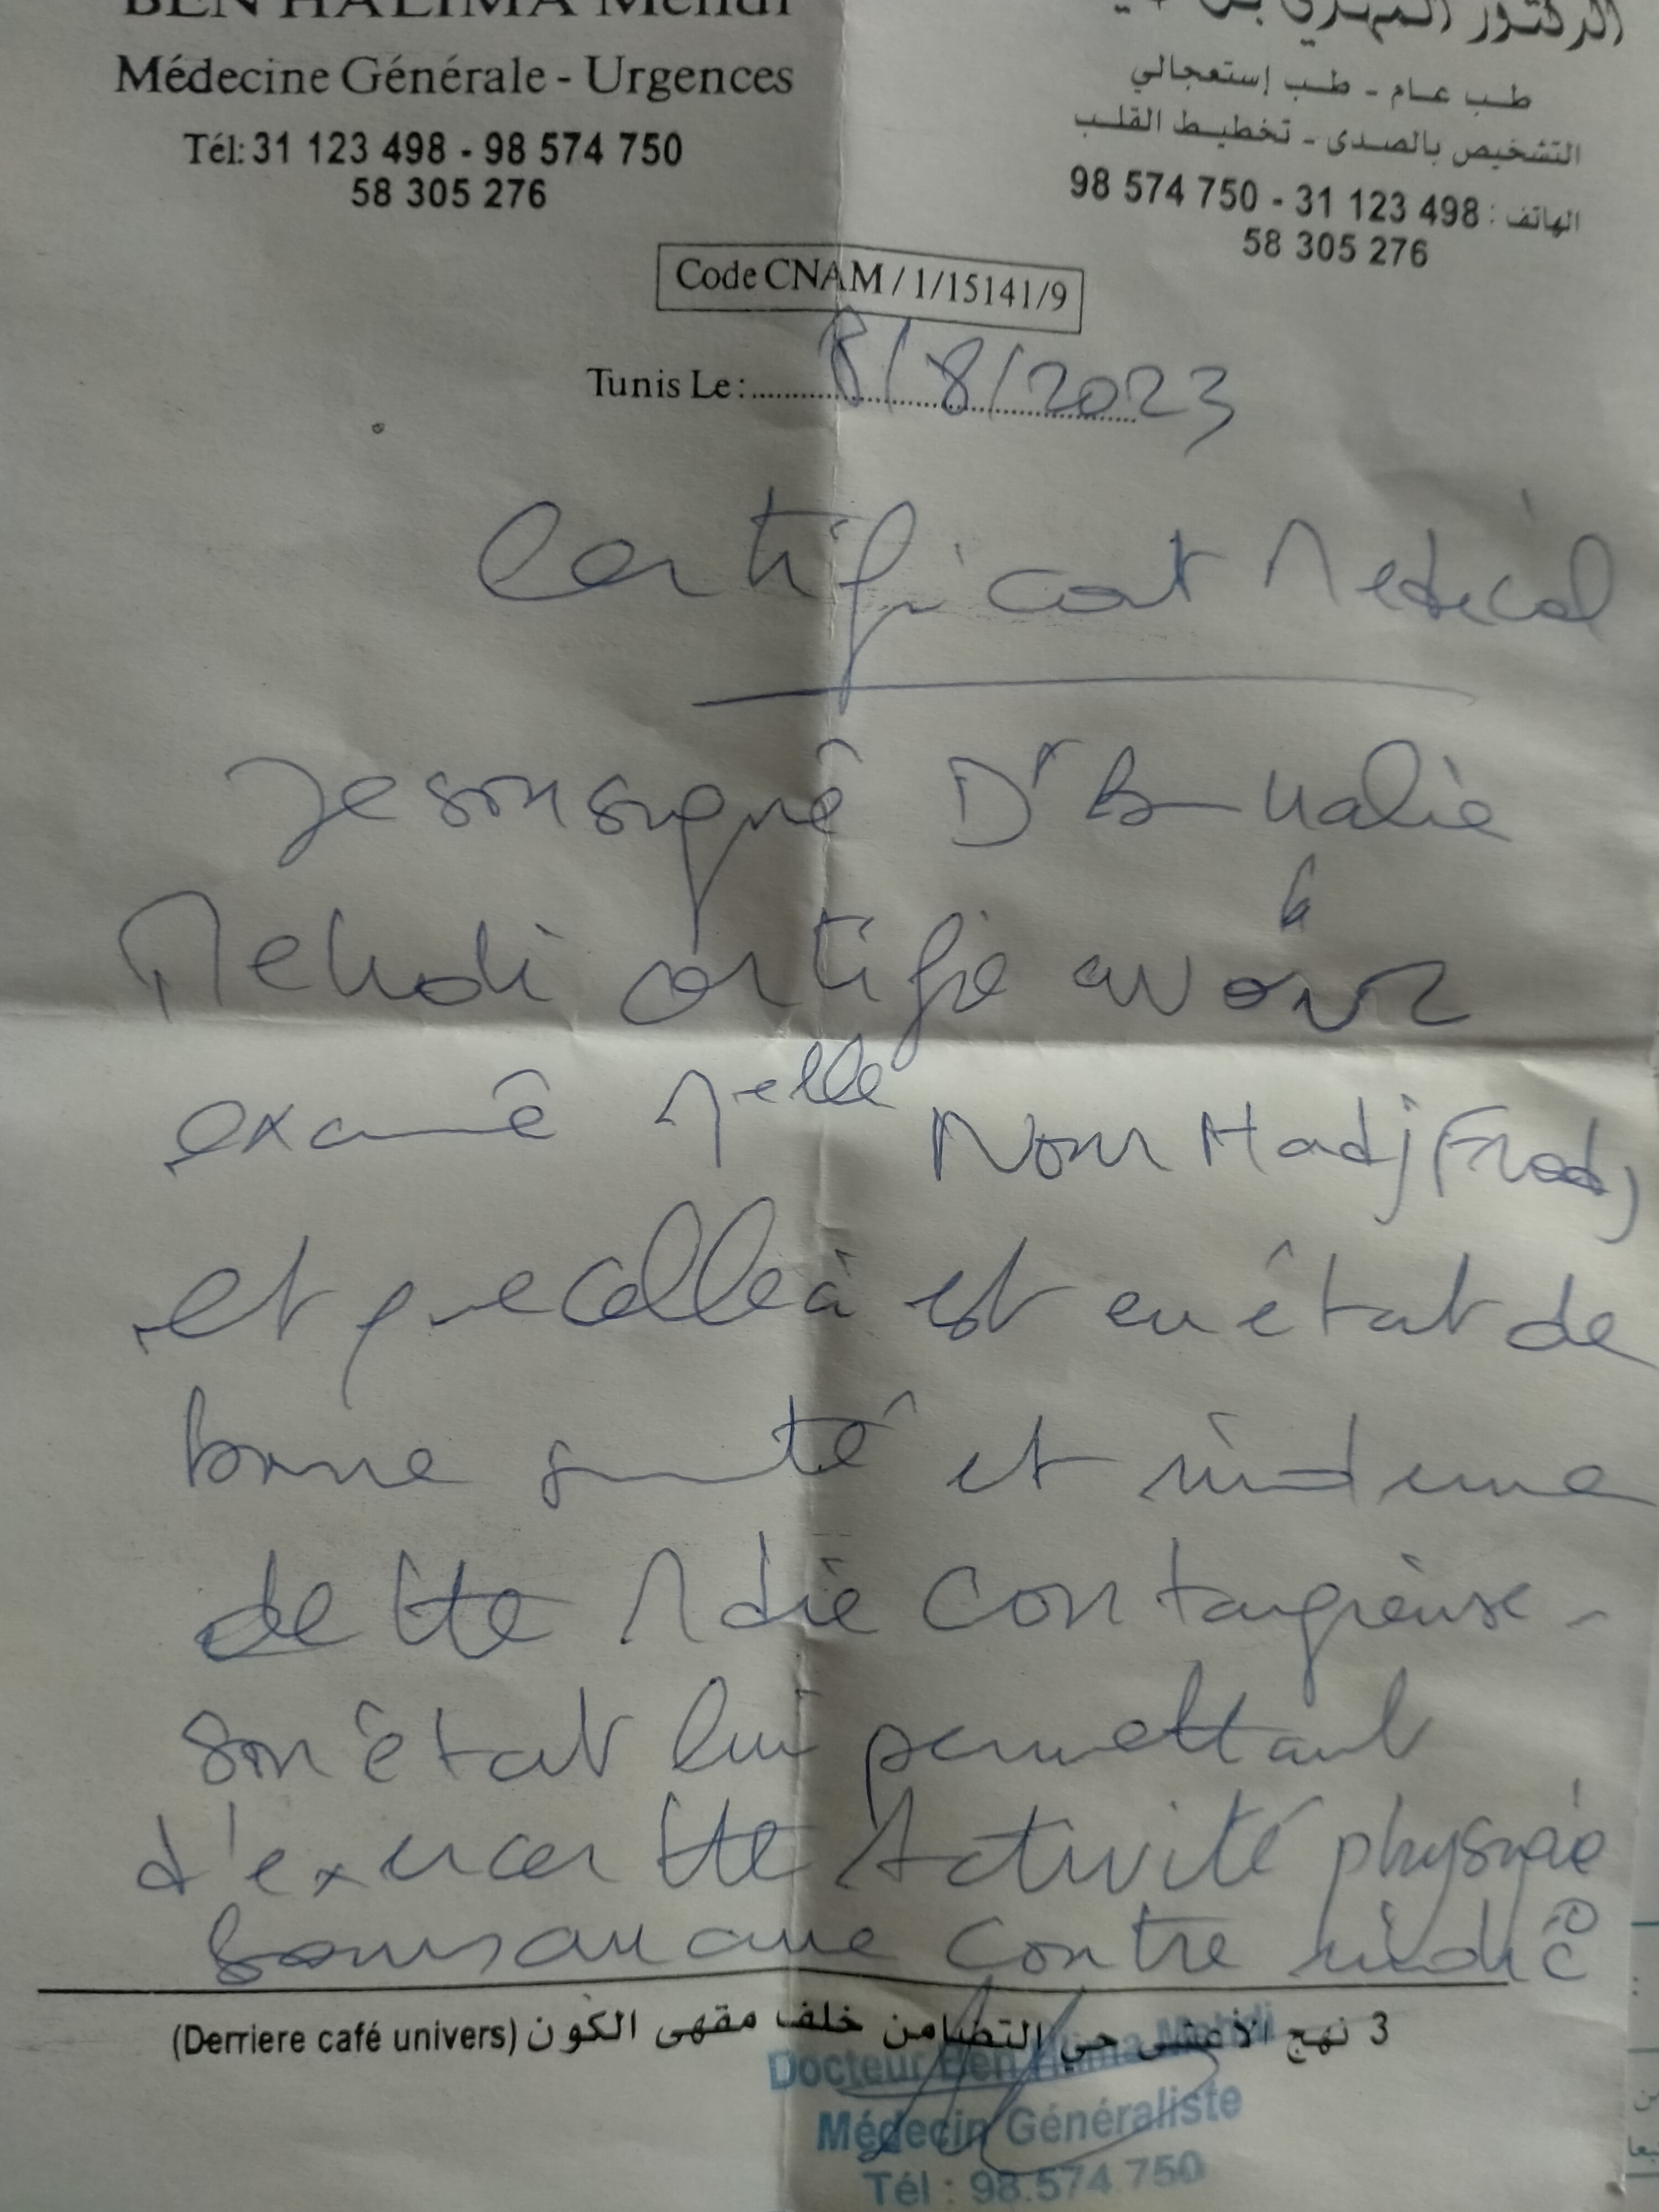 BEN HALIMA Mehdi
Médecine Générale - Urgences
Tél: 31 123 498 - 98 574 750
58 305 276
الدكتور المهدي بن
طب عام - طب إستعجالي
التشخيص بالصدى - تخطيط القلب
الهاتف : 31 123 498 - 98 574 750
58 305 276
Code CNAM / 1/15141/9
Tunis Le : 8/8/2023
Certificat Medical
Je soussigné Dr B Halia
Mehdi certifie avoir
examé Melle Nour Hadj Fredj
et que celle à est en état de
bonne santé et indeme
de tte Mdie contagieuse -
son état lui permettant
d'exercer tte Activité physique
sans aucune contre indic
3 نهج الأعشى حي التضامن خلف مقهى الكون (Derriere café univers)
Docteur Ben Halima Mehdi
Médecin Généraliste
Tél : 98.574.750